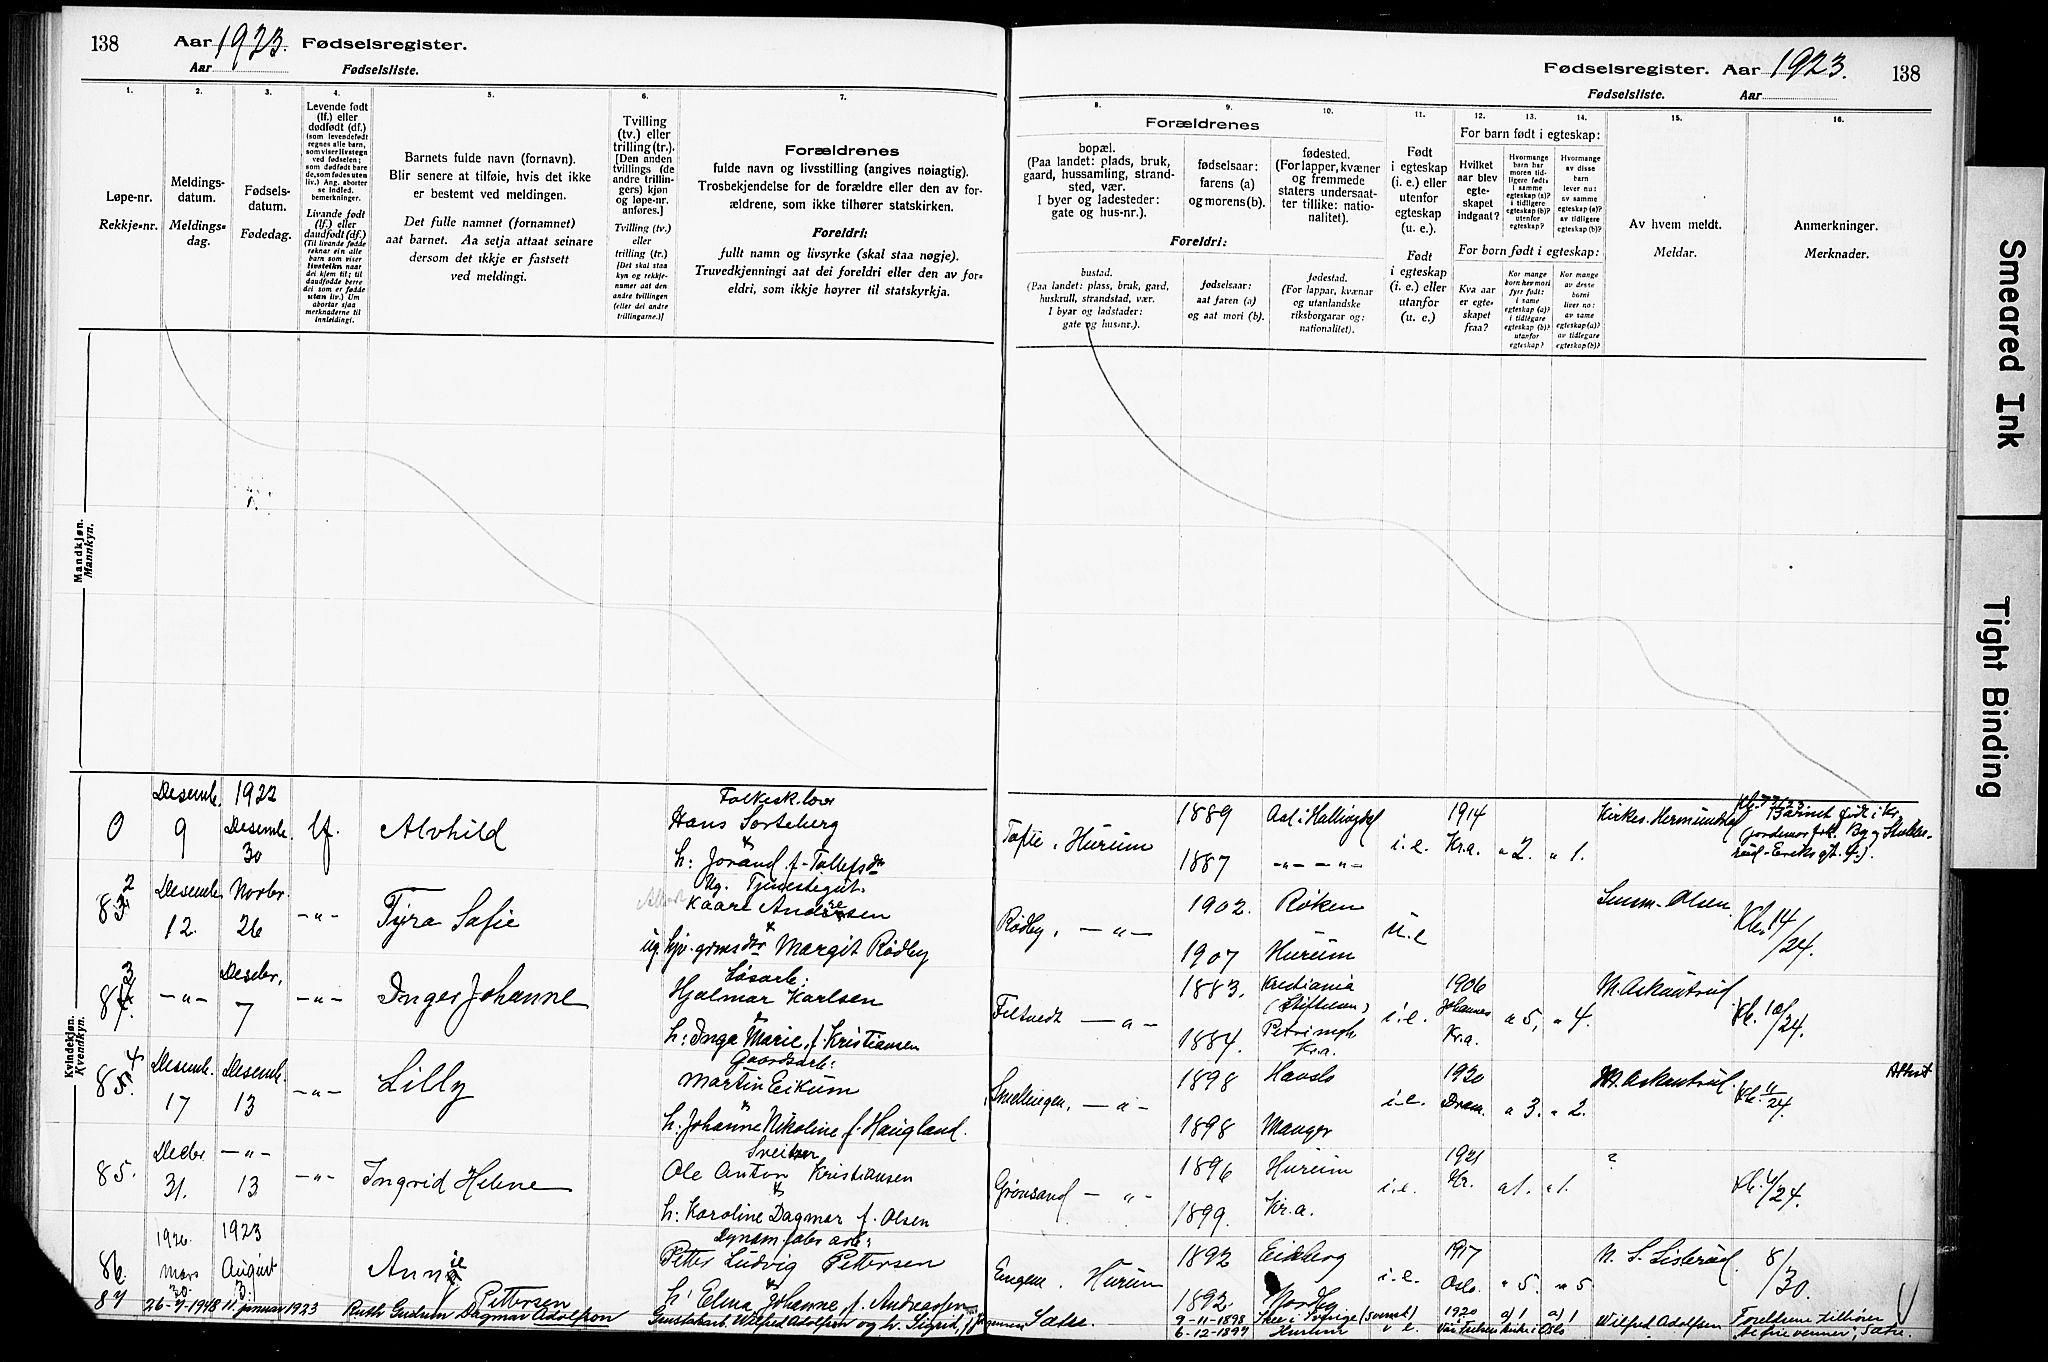 138 Aar 1923. Fødselsregister.
Aar Fødselsliste.
Fødselsregister. Aar 1923. 138
Fødselsliste. Aar
1. 2. 3. 4. 5. 6. 7.
Løpe-nr.
Rekkje-nr.
Meldings-
datum.
Meldings-
dag.
Fødsels-
datum.
Fødedag.
Levende født
(lf.) eller
dødfødt (df.)
(som levendefødt
regnes alle barn,
som viser livstegn
ved fødselen;
som dødfødt bare
de, som fødes uten
liv.) Ang. aborter
se Indled.
bemerkninger.
Livande født
(lf.) eller
daudfødt (df.)
(Til livande fødde
reknar ein alle
barn som viser
livsteikn naar
dei kjem til; til
daudfødde berre
dei som er fødde
utan liv.) Um
abortar sjaa
merknaderne til
innleidingi.
Barnets fulde navn (fornavn).
Blir senere at tilføie, hvis det ikke
er bestemt ved meldingen.
Det fulle namnet (fornamnet)
aat barnet. Aa setja attaat seinare
dersom det ikkje er fastsett
ved meldingi.
Tvilling
(tv.) eller
trilling (tr.).
[Den anden
tvillings (de
andre trillin-
gers) kjøn
og løpe-nr.
anføres.]
Tvilling (tv.)
eller
trilling (tr.)
[Det skal staa
kyn og rekkje-
numer aat den
andre tvillingen
(eller dei andre
trillingarne.)]
Forældrenes
fulde navn og livsstilling (angives nøiagtig).
Trosbekjendelse for de forældre eller den av for-
ældrene, som ikke tilhører statskirken.
Foreldri:
fullt namn og livsyrke (skal staa nøgje).
Truvedkjenningi aat dei foreldri eller den av for-
eldri, som ikkje høyrer til statskyrkja.
8. 9. 10. 11. 12. 13. 14. 15. 16.
Forældrenes
bopæl.
(Paa landet: plads, bruk,
gaard, hussamling, strand-
sted, vær.
I byer og ladesteder:
gate og hus-nr.).
Foreldri:
bustad.
(Paa landet: plass, bruk, gard,
huskrull, strandstad, vær.
I byar og ladstader:
gate og hus-nr.).
fødselsaar:
farens (a)
og morens (b).
fødselsaar:
aat faren (a)
og aat mori (b).
fødested.
(For lapper, kvæner
og fremmede
staters undersaat-
ter tillike: natio-
nalitet).
fødestad.
(For lappar, kvænar
og utanlandske
riksborgarar og:
nationalitet).
Født
i egteskap
(i. e.) eller
utenfor
egteskap
(u. e.).
Født
i egteskap
(i. e.) eller
utanfor
egteskap
(u. e.)
For barn født i egteskap:
Hvilket
aar blev
egte-
skapet
indgaat?
Hvormange
barn har
moren tid-
ligere født.
i samme
egteskap (a)?
i tidligere
egteskap (b)?
utenfor
egteskap?
Hvormange
av disse
barn
lever nu:
av samme
egteskap (a)?
av tidligere
egteskap (b)?
For born født i egteskap:
Kva aar
er egte-
skapet
fraa?
Kor mange
born hev mori
fyrr født:
i same
egteskap (a)?
i tidlegare
egteskap (b)?
utanfor
egteskap?
Kor mange
av desse
borni
liver no:
av same
egteskap (a)?
av tidlegare
egteskap (b)?
Av hvem meldt.
Meldar.
Anmerkninger.
Merknader.
Mandkjøn.
Mannkyn.
Kvindekjøn.
Kvendkyn.
0 Desemb. 9 1922 Desemb. 30 lf. Alvhild
Hans Sorteberg
h: Jorand f. Tollefsdtr
Tofte, Hurum 1889 Aal i Hallingdal i.e. 1914 Kr.a. a 2. a 1.
1887 -"- -"-
832 Desemb. 12. Novbr. 26 -"- Tyra Sofie
Ug. Tjenestegut.
Kaare Andresen
ug. hjv. grmsdtr Margit Rødby
Rødby, -"- 1902. Røken u.e Kb. 14/24.
1907 Hurum
83 -"- Desbr. 7 -"- Inger Johanne
Løsarb:
Hjalmar Karlsen
h: Inga Marie, f. Kristiansen
Filtvedt -"- 1883. Kristiania i.e. 1906 Johannes Kr.a. a 5, " 4. M. Askautrud Kb. 10/24.
1884. Kr.a.
84 Desemb. 17 Desemb. 13 -"- Lilly
Gaardsarb:
Martin Eikum
h. Johanne Nikoline f. Haugland.
Smellingen, -"- 1898 Havslo i.e. 1920 Dram. a 3. " 2. M. Askautrud. Kb. 11/24. Attest
1898 Manger
85. Decbr 31. -"- 13 -"- Ingrid Helene
Sveitser
Ole Anton Kristiansen
h: Karoline Dagmar f. Olsen
Grønsand -"- 1896 Hurum i.e. 1921 Kr. a 1. a 1. ?
1899. Kr.a.
86. 1926. Mars 30. 1923 August 3. Annie Pettersen
Dynam.fabr arb:
Petter Ludvig Pettersen
h: Elna Johanne f. Andreassen
Engene. Hurum 1892 Eikberg i.e. 1917 Oslo " 5. " 5 N. S. Listerud. 8/30.
1892.
87 26-7-1948 11 januar 1923 Ruth Gudrun Dagmar Adolfson Wilfred Adolfson og h. Sigrid, Sætre. 9-11-1898 Skee i Sverige (svensk) 1920 a) 1 a) 1 Wilfred Adolfsen Foreldrene tilhører
6-12-1897 Hurum Vår Frelsers kirke i Oslo "de frie venner", Sætre.
Smeared Ink
Tight Binding